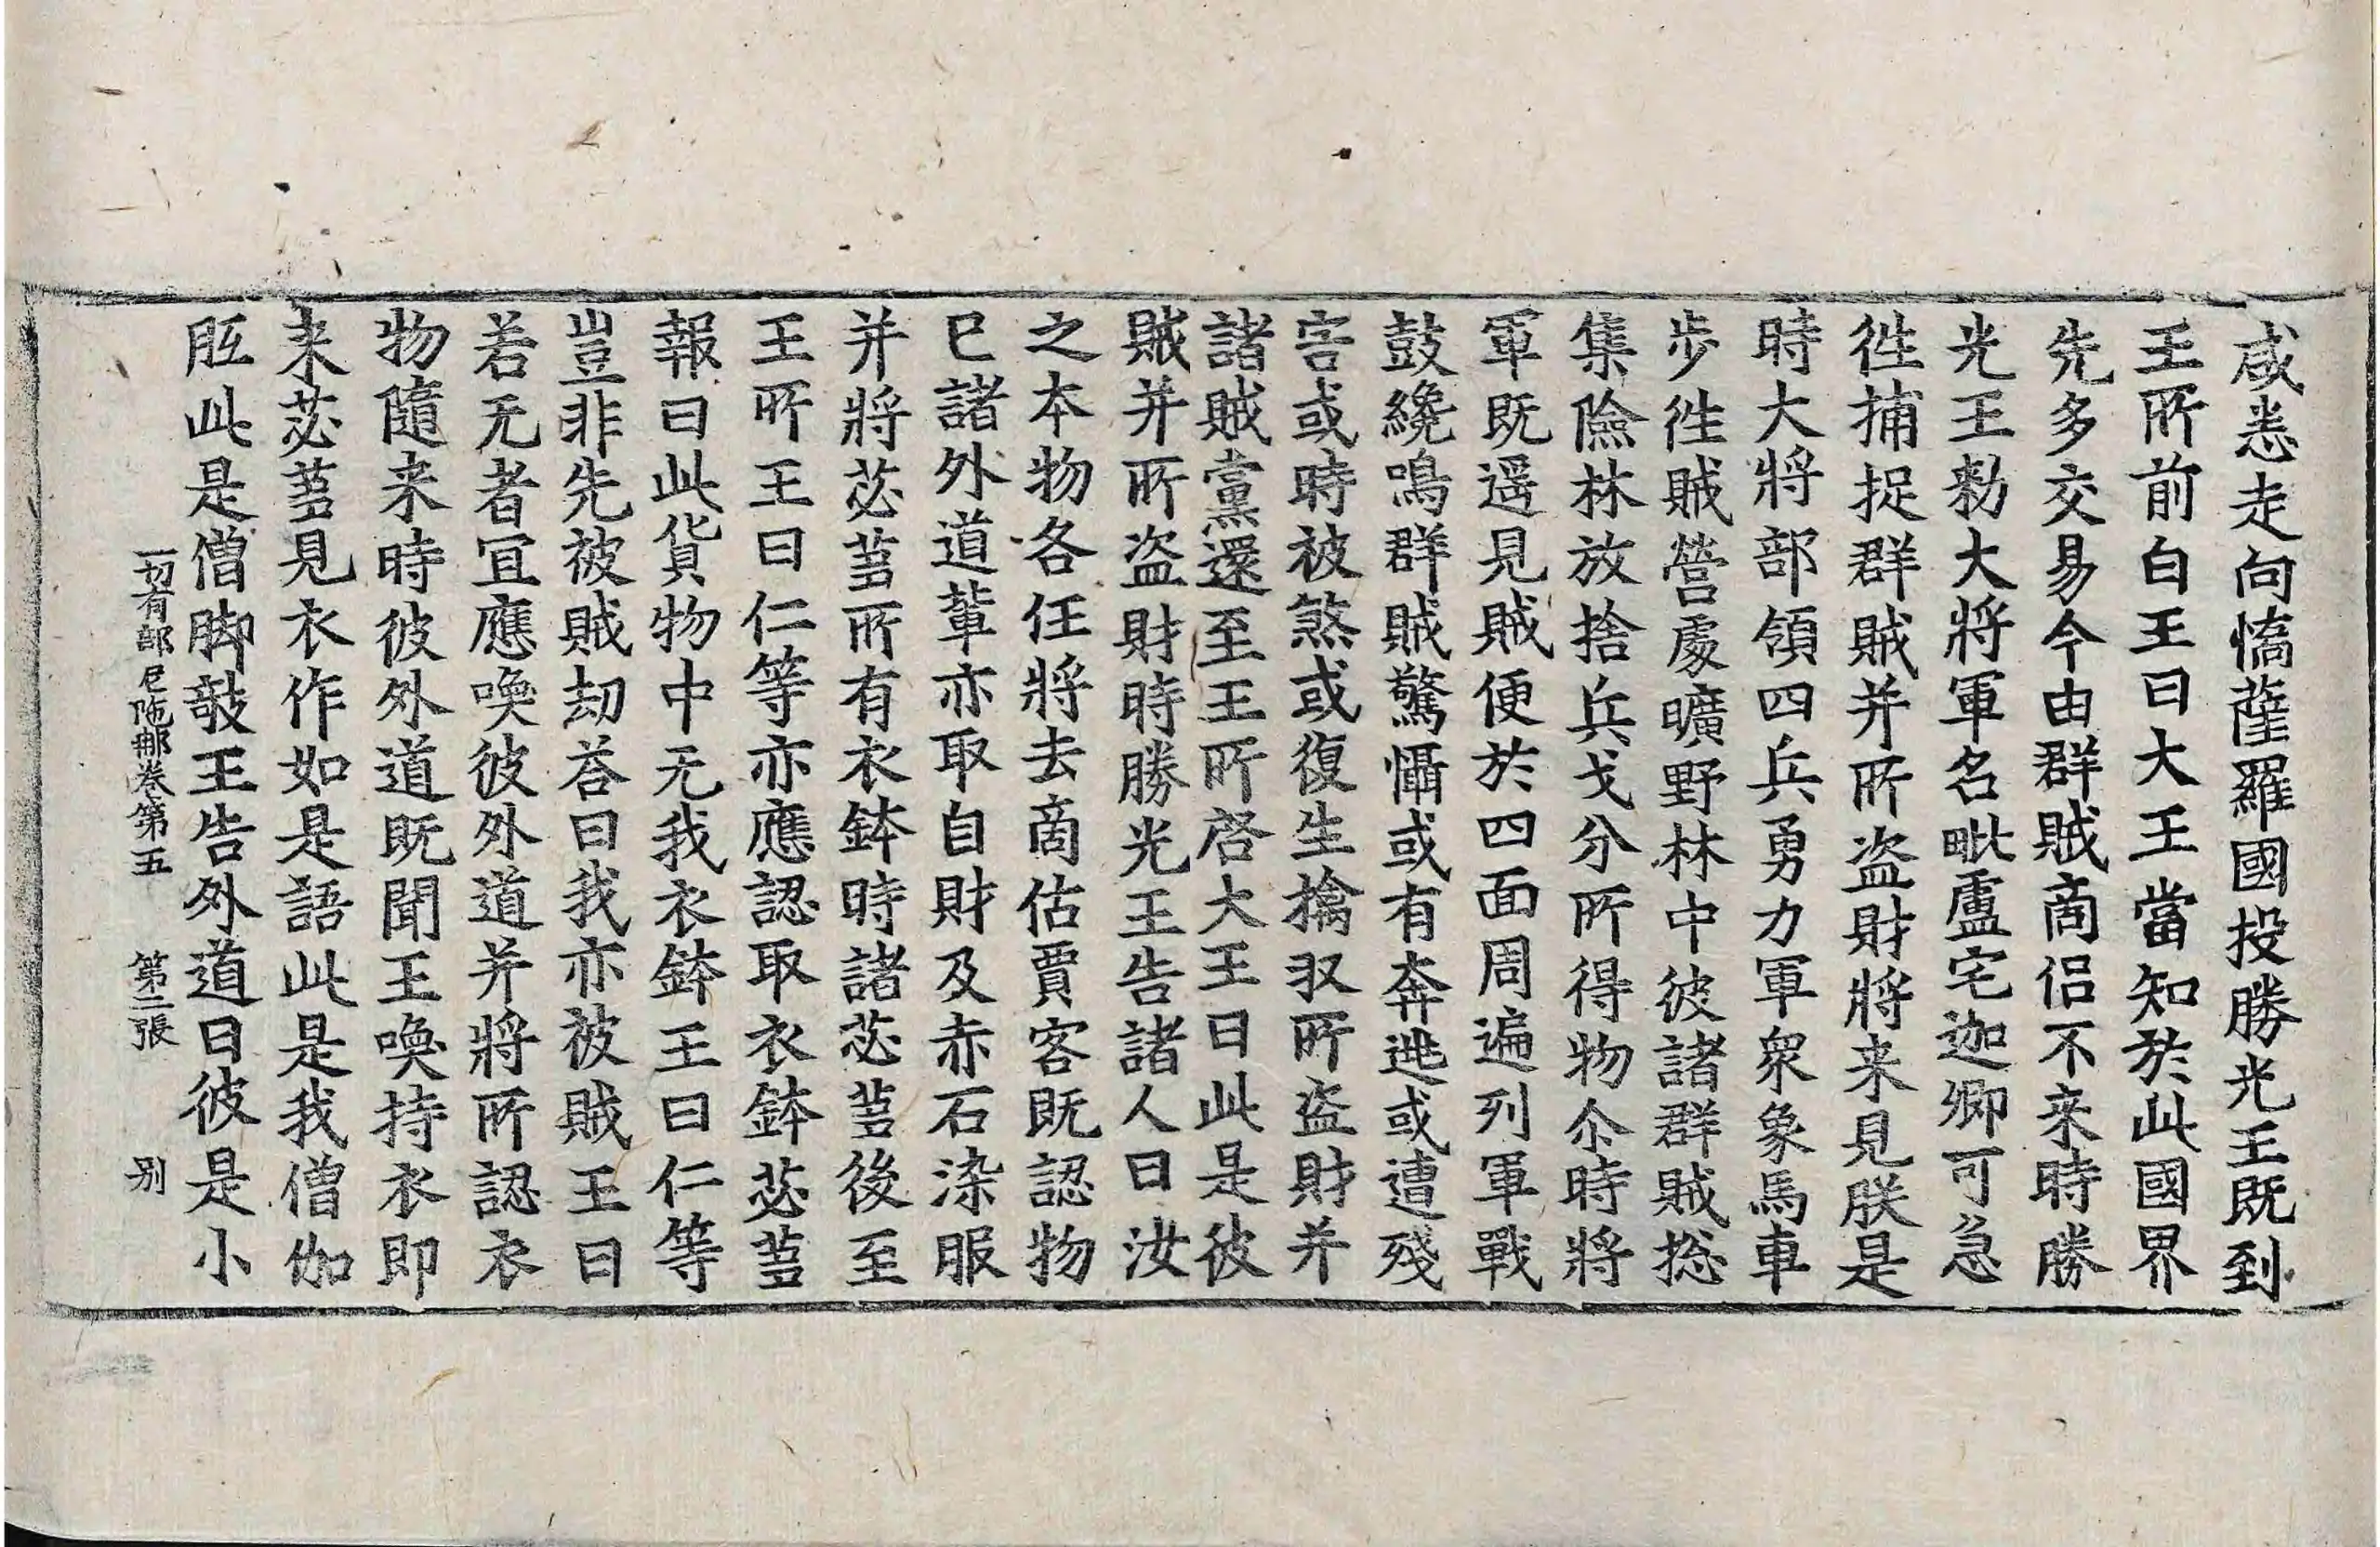 咸悉走向憍薩羅國投勝光王既到
王所前白王曰大王當知於此國界
先多交易今由群賊商侶不来時勝
光王勑大將軍名毗盧宅迦卿可急
徃捕捉群賊并所盗財將来見朕是
時大將部領四兵勇力軍衆象馬車
歩徃賊營處曠野林中彼諸群賊捴
集險林放捨兵戈分所得物尒時將
軍既遥見賊便於四面周遍列軍戰
鼓纔鳴群賊驚懾或有奔逃或遭殘
害或時被煞或復生擒収所盗財并
諸賊黨還至王所啓大王曰此是彼
賊并所盗財時勝光王告諸人曰汝
之本物各任將去商估賈客既認物
已諸外道輩亦取自財及赤石染服
并將苾蒭所有衣鉢時諸苾蒭後至
王所王曰仁等亦應認取衣鉢苾蒭
報曰此貨物中无我衣鉢王曰仁等
豈非先被賊劫荅曰我亦被賊王曰
若无者冝應喚彼外道并將所認衣
物隨来時彼外道既聞王喚持衣即
来苾蒭見衣作如是語此是我僧伽
胝此是僧脚敧王告外道曰彼是小
一切有部尼陁那卷第五 第二張 别